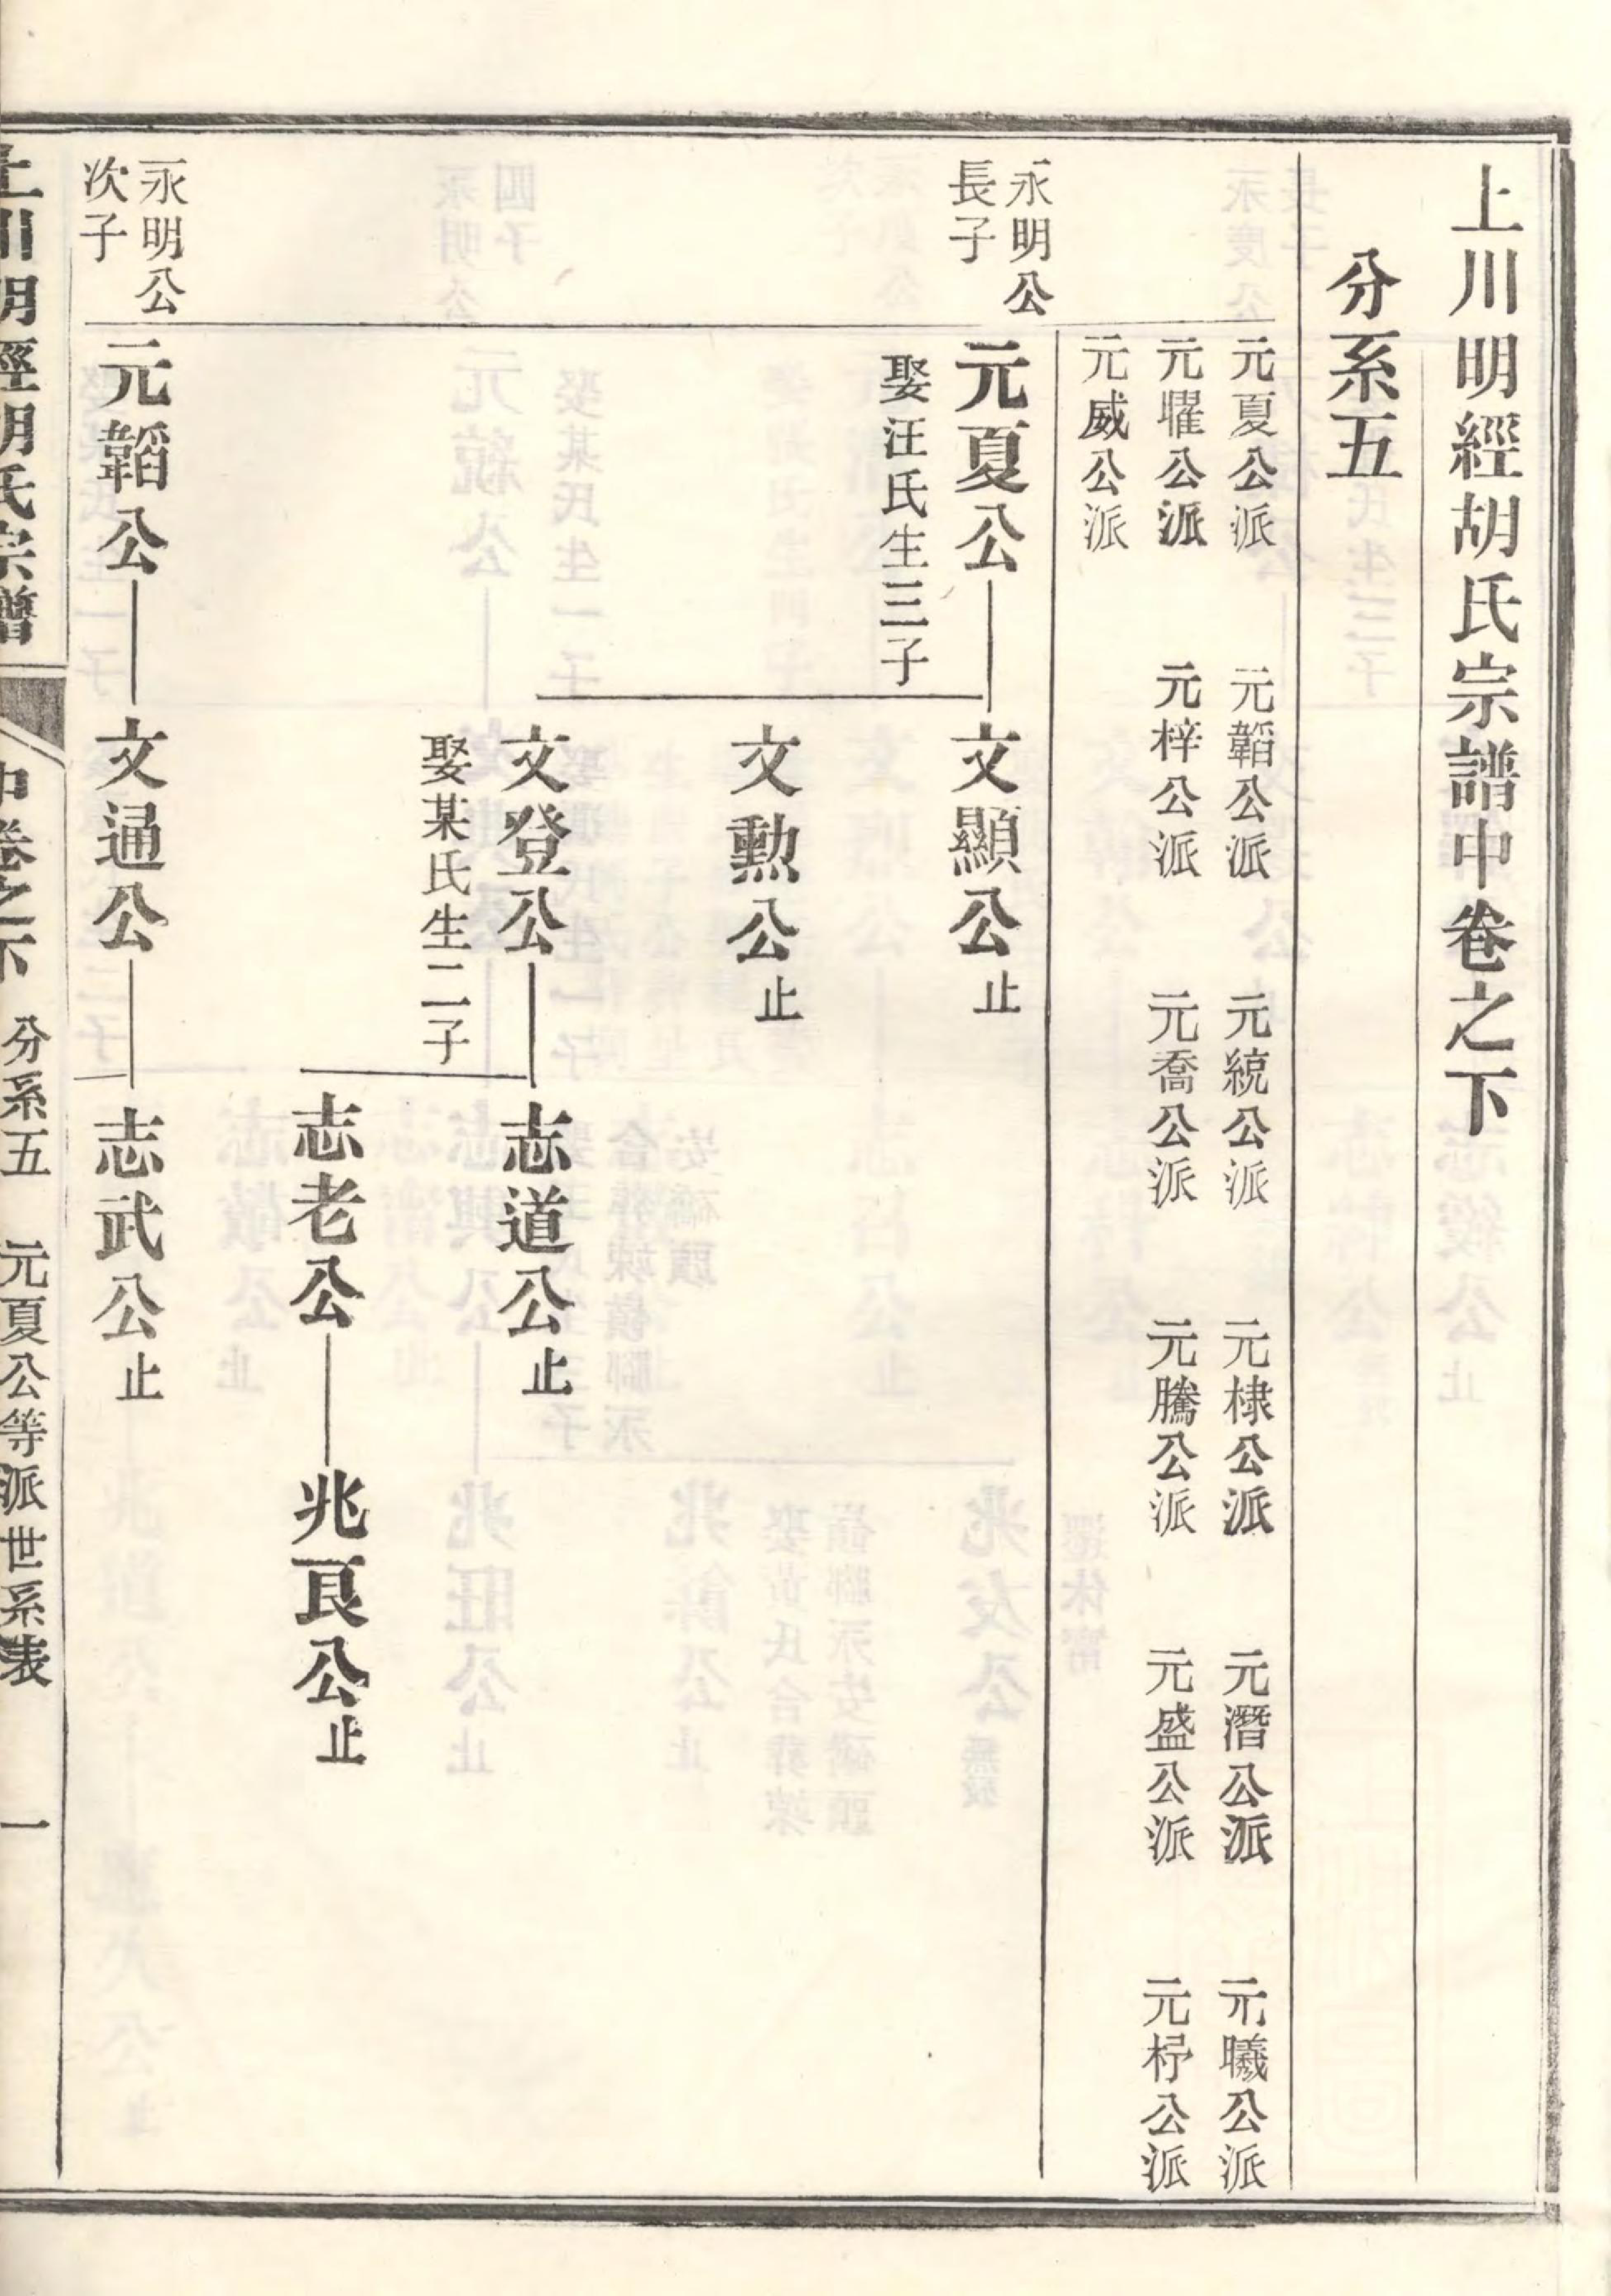 上川明經胡氏宗譜中卷之下
分系五
元夏公派　元韜公派　元統公派　元棣公派　元潛公派　元曦公派
元曜公派　元梓公派　元喬公派　元騰公派　元盛公派　元杼公派
元威公派
永明公
長子
元夏公
娶汪氏生三子
文顯公止
文勲公止
文登公
娶某氏生二子
志道公止
志老公
兆良公止
永明公
次子
元韜公
文通公
志武公止
上川明經胡氏宗譜　中卷之下　分系五　元夏公等派世系表　一